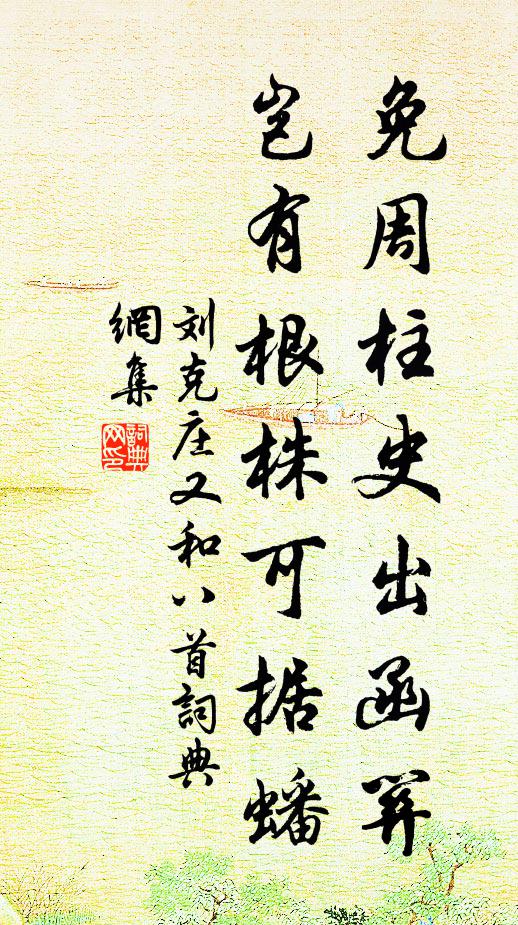 免周柱史出函関
岂有根株可据蟠
刘克庄又和八首詞典
網集
詞典
网印